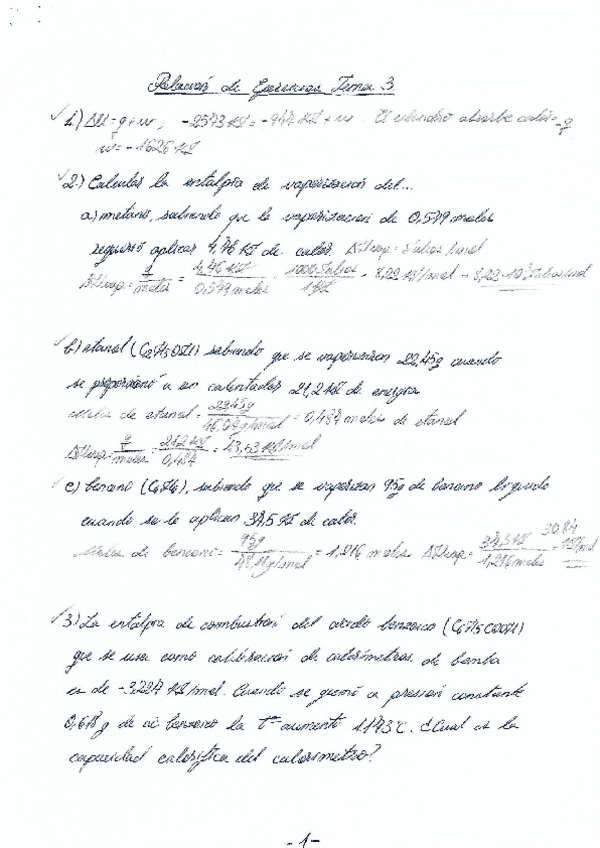 Relación de Ejercicios Tema 3
1.) ΔU=q+w; -2573 KJ = -947 KJ + w. El cilindro absorbe calor = -q
w = -1626 KJ
2.) Calcular la entalpía de vaporización del...
a) metano, sabiendo que la vaporización de 0,579 moles
requirió aplicar 4,76 KJ de calor. ΔHvap = Julios/mol
ΔHvap = q/moles = 4,76 KJ/0,579 moles · 1000 Julios/1 KJ = 8,22 KJ/mol = 8,22·10³ Julios/mol
b) etanol (C2H5OH) sabiendo que se vaporizan 22,45g cuando
se proporcionó a un calentador 21,2 KJ de energía
Moles de etanol = 22,45g/46,07g/mol = 0,487 moles de etanol
ΔHvap = q/moles = 21,2 KJ/0,487 = 43,53 KJ/mol
c) benceno (C6H6), sabiendo que se vaporizan 95g de benceno líquido
cuando se le aplican 37,5 KJ de calor.
Moles de benceno = 95g/78,11g/mol = 1,216 moles ΔHvap = 37,5 KJ/1,216 moles = 30,84 KJ/mol
3) La entalpía de combustión del ácido benzoico (C6H5COOH)
que se usa como calibración de calorímetros de bomba
es de -3227 KJ/mol. Cuando se quemó a presión constante
0,618 g de ác benzoico la tª aumento 1'173ºC. ¿Cual es la
capacidad calorífica del calorímetro?
-1-